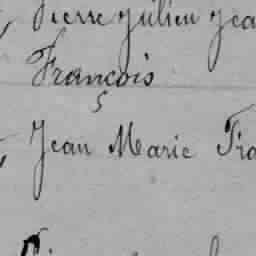 Pierre Julien Jea
François
Jean Marie Fra